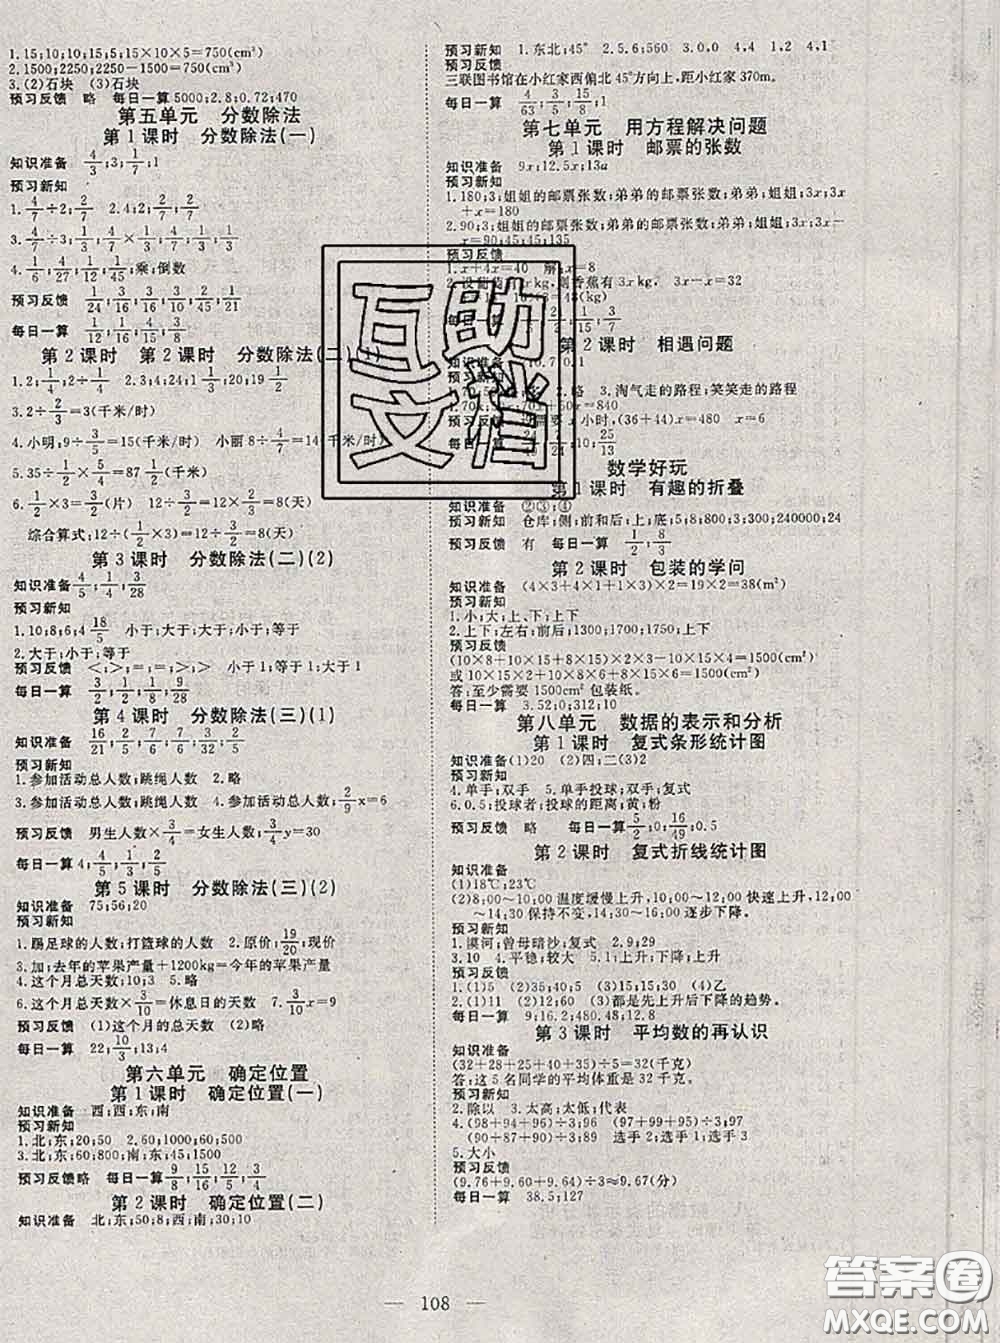 1.15;10;10;15;5;15×10×5=750(cm³)
2.1500;2250;2250-1500=750(cm³)
3.(2)石块 (3)石块
预习反馈 略 每日一算 5000;2.8;0.72;470
第五单元 分数除法
第1课时 分数除法(一)
知识准备 4/3;3;1/7;1
预习新知
1.4/7÷2;2/7 2.4;2/7;2/7
4.1/6;1/27;1/12;1/45;乘;倒数
预习反馈 1/24;3/16;1/16;3/10;2/10;1/21
每日一算 1/12;1/16;5/18
第2课时 第2课时 分数除法(二)(1)
3.2÷2/3=3(千米/时)
4.小明:9÷3/5=15(千米/时) 小丽
6.1/2×1/2=3(片) 12÷ 12÷ =8(天)
综合算式:12÷(1/2×3)=12÷3/2=8(天)
第3课时 分数除法(二)(2)
知识准备 4/5;1/4;3/28
预习新知
1.10;8;6;4 18/5 小于;大于;大于;小于;等于
2.大于;小于;等于
预习反馈 <;>;=;>;> 小于1;等于1;大于1
每日一算 3/2;1/2;1/8;9/28
第4课时 分数除法(三)(1)
知识准备 16/21;2/5;7/6;7/6;3/32;2/5
预习新知
1.参加活动总人数;跳绳人数 2.略
3.参加活动总人数;跳绳人数 4.参加活动总人数;2/9x=6
预习反馈 男生人数×3/4=女生人数;3/4y=30
每日一算 4;1/5;1/3;2/5
第5课时 分数除法(三)(2)
知识准备 75;56;20
预习新知
1.踢足球的人数;打篮球的人数 2.原价;19/20;现价
3.加;去年的苹果产量+1200kg=今年的苹果产量
4.这个月总天数;10;3 5.略
6.这个月总天数×3/10=休息日的天数 7.9/10;x
预习反馈 (1)这个月的总天数 (2)略
每日一算 22;10/3;13;4
第六单元 确定位置
第1课时 确定位置(一)
知识准备 西;西;东;南
预习新知
1.北;东;20;50 2.60;1000;60;500
3.北;东;60;800;南;东;45;1500
预习反馈略 每日一算 9/8;8/15;12/15;3/4
第2课时 确定位置(二)
知识准备 北;东;50;8;西;南;30;10
预习新知 1.东北;45° 2.5.6;560 3.0 4.4 1.2 4.1
预习反馈
三联图书馆在小红家西偏北45°方向上,距小红家370m。
每日一算 4/63;3/5;15/8;1
第七单元 用方程解决问题
第1课时 邮票的张数
知识准备 9x;12.5x;13a
预习新知
1.180;3;姐姐的邮票张数;弟弟的邮票张数;弟弟;姐姐;3x;3x
+x=180
2.90;3;姐姐的邮票张数;弟弟的邮票张数;弟弟;姐姐;3x;3x-
x=90;45;45;135
预习反馈
1.x+4x=40 解:x=8
每日一算
第2课时 相遇问题
知识准备 10.7 0.1
预习新知
2.略 3.淘气走的路程;笑笑走的路程
x+50x=840
预习反馈 x小时,(36+44)x=480 x=6
每日一算
数学好玩
第1课时 有趣的折叠
知识准备 ②③;④
预习新知 仓库;侧;前和后;上;底;5;8;800;3;300;240000;24
预习反馈 有 每日一算 1/2;8/3
第2课时 包装的学问
知识准备 (4×3+4×1+1×3)×2=38(m²)
预习新知
1.小;大;上、下;上下
2.上下;左右;前后;1300;1700;1750;上下
预习反馈
(10×8+10×15+8×15)×2×3-10×15×4=1500(cm²)
或10×15×2+10×8×6+8×15×6=1500(cm²)
答:至少需要1500cm²包装纸。
每日一算 3.52;0;312;10
第八单元 数据的表示和分析
第1课时 复式条形统计图
知识准备(1)20 (2)四;二(3)2
预习新知
4.单手;双手 5.单手投球;双手;复式
6.0.5;投球者;投球的距离;黄;粉
预习反馈 略 每日一算 5/2;0;16/49;0.5
第2课时 复式折线统计图
知识准备
(1)18℃;23℃
(2)8:00~10:00温度缓慢上升,10:00~12:00快速上升,12:00
~14:30保持不变,14:30~16:00逐步下降。
预习新知
1.漠河;曾母暗沙;复式 2.9;29
3.10 4.平稳;较大 5.0;上升;下降;上升
预习反馈
1.(1)5 (2)35;40;5 (3)15;15;30 (4)乙
2.(1)11 (2)12;60 (3)都是先上升后下降的趋势。
每日一算 9;16.2;480.48;12.8
第3课时 平均数的再认识
知识准备
(32+28+25+34+41)÷5=32(千克)
答:这5名同学的平均体重是32千克。
预习新知
2.除以 3.太高;太低;代表
4.(92+94+96)÷3=94 (97+99+95)÷3=97
(90+87+93)÷3=90 选手2 选手1 选手3
5.大小
预习反馈
(9.76+9.60+9.64)÷3≈9.67(分)
每日一算 38.5;127
互助
文档
答案圈
MXQE.COM
108